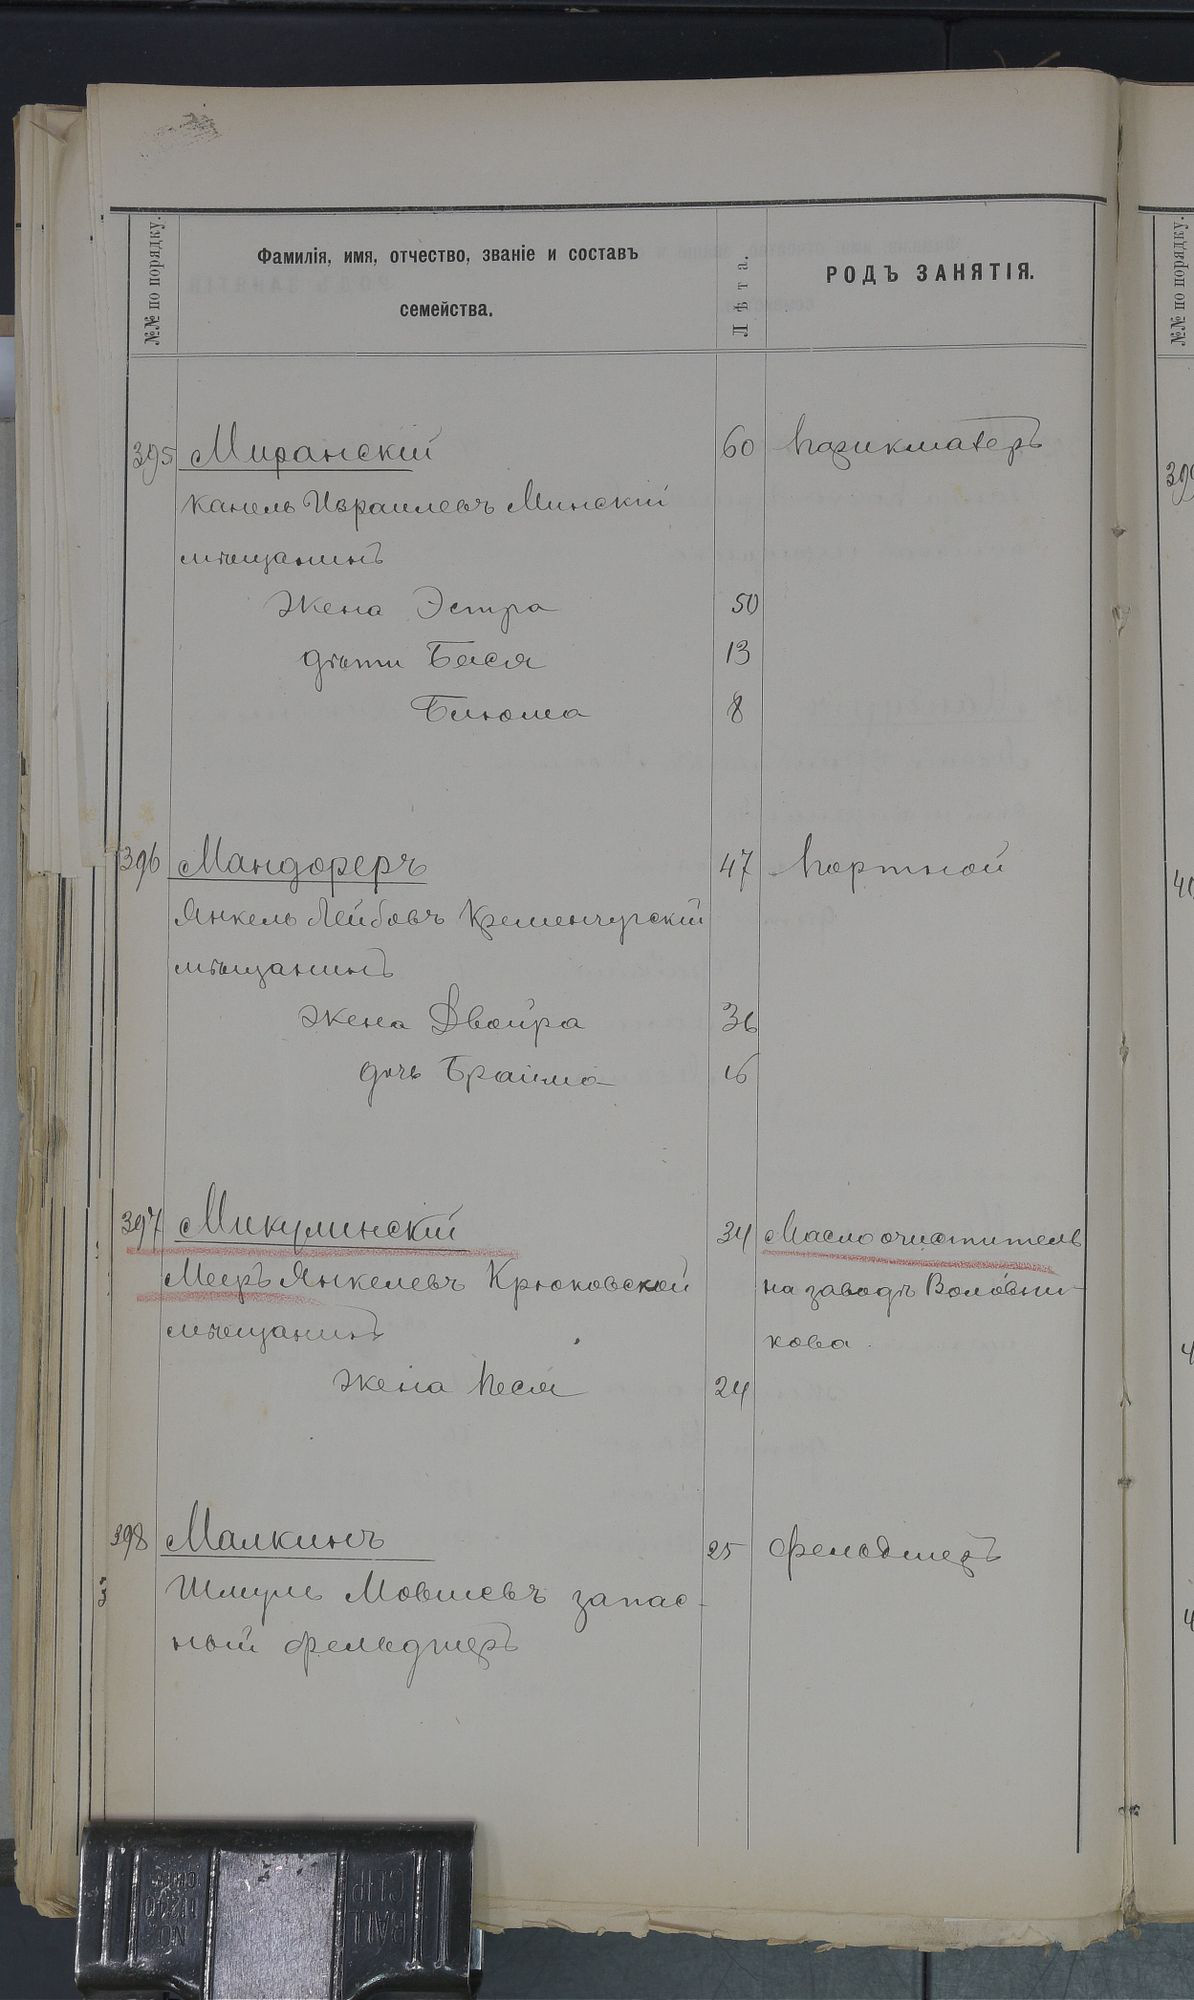 №№ по порядку.
Фамилія, имя, отчество, званіе и составъ
семейства.
Лѣта.
РОДЪ ЗАНЯТІЯ.
№№ по порядку.
395 Миранскій 60 Парикмахеръ
Канель Израилевъ Минскій
мѣщанинъ
Жена Эстра 50
дѣти Бася 13
Блюма 8
396 Мандореръ 47 Портной
Янкель Лейбовъ Кременчугскій
мѣщанинъ
Жена Двойра 36
дочь Брайма 16
397 Микулинскій 34 Маслоочиститель
Мееръ Янкелевъ Крюковской на заводѣ Воловни-
мѣщанинъ кова.
Жена Песя 24
398 Малкинъ 25 фельдшеръ
Шмуль Мовшевъ запас-
3
ный фельдшеръ
BALL
CLIP
NO.